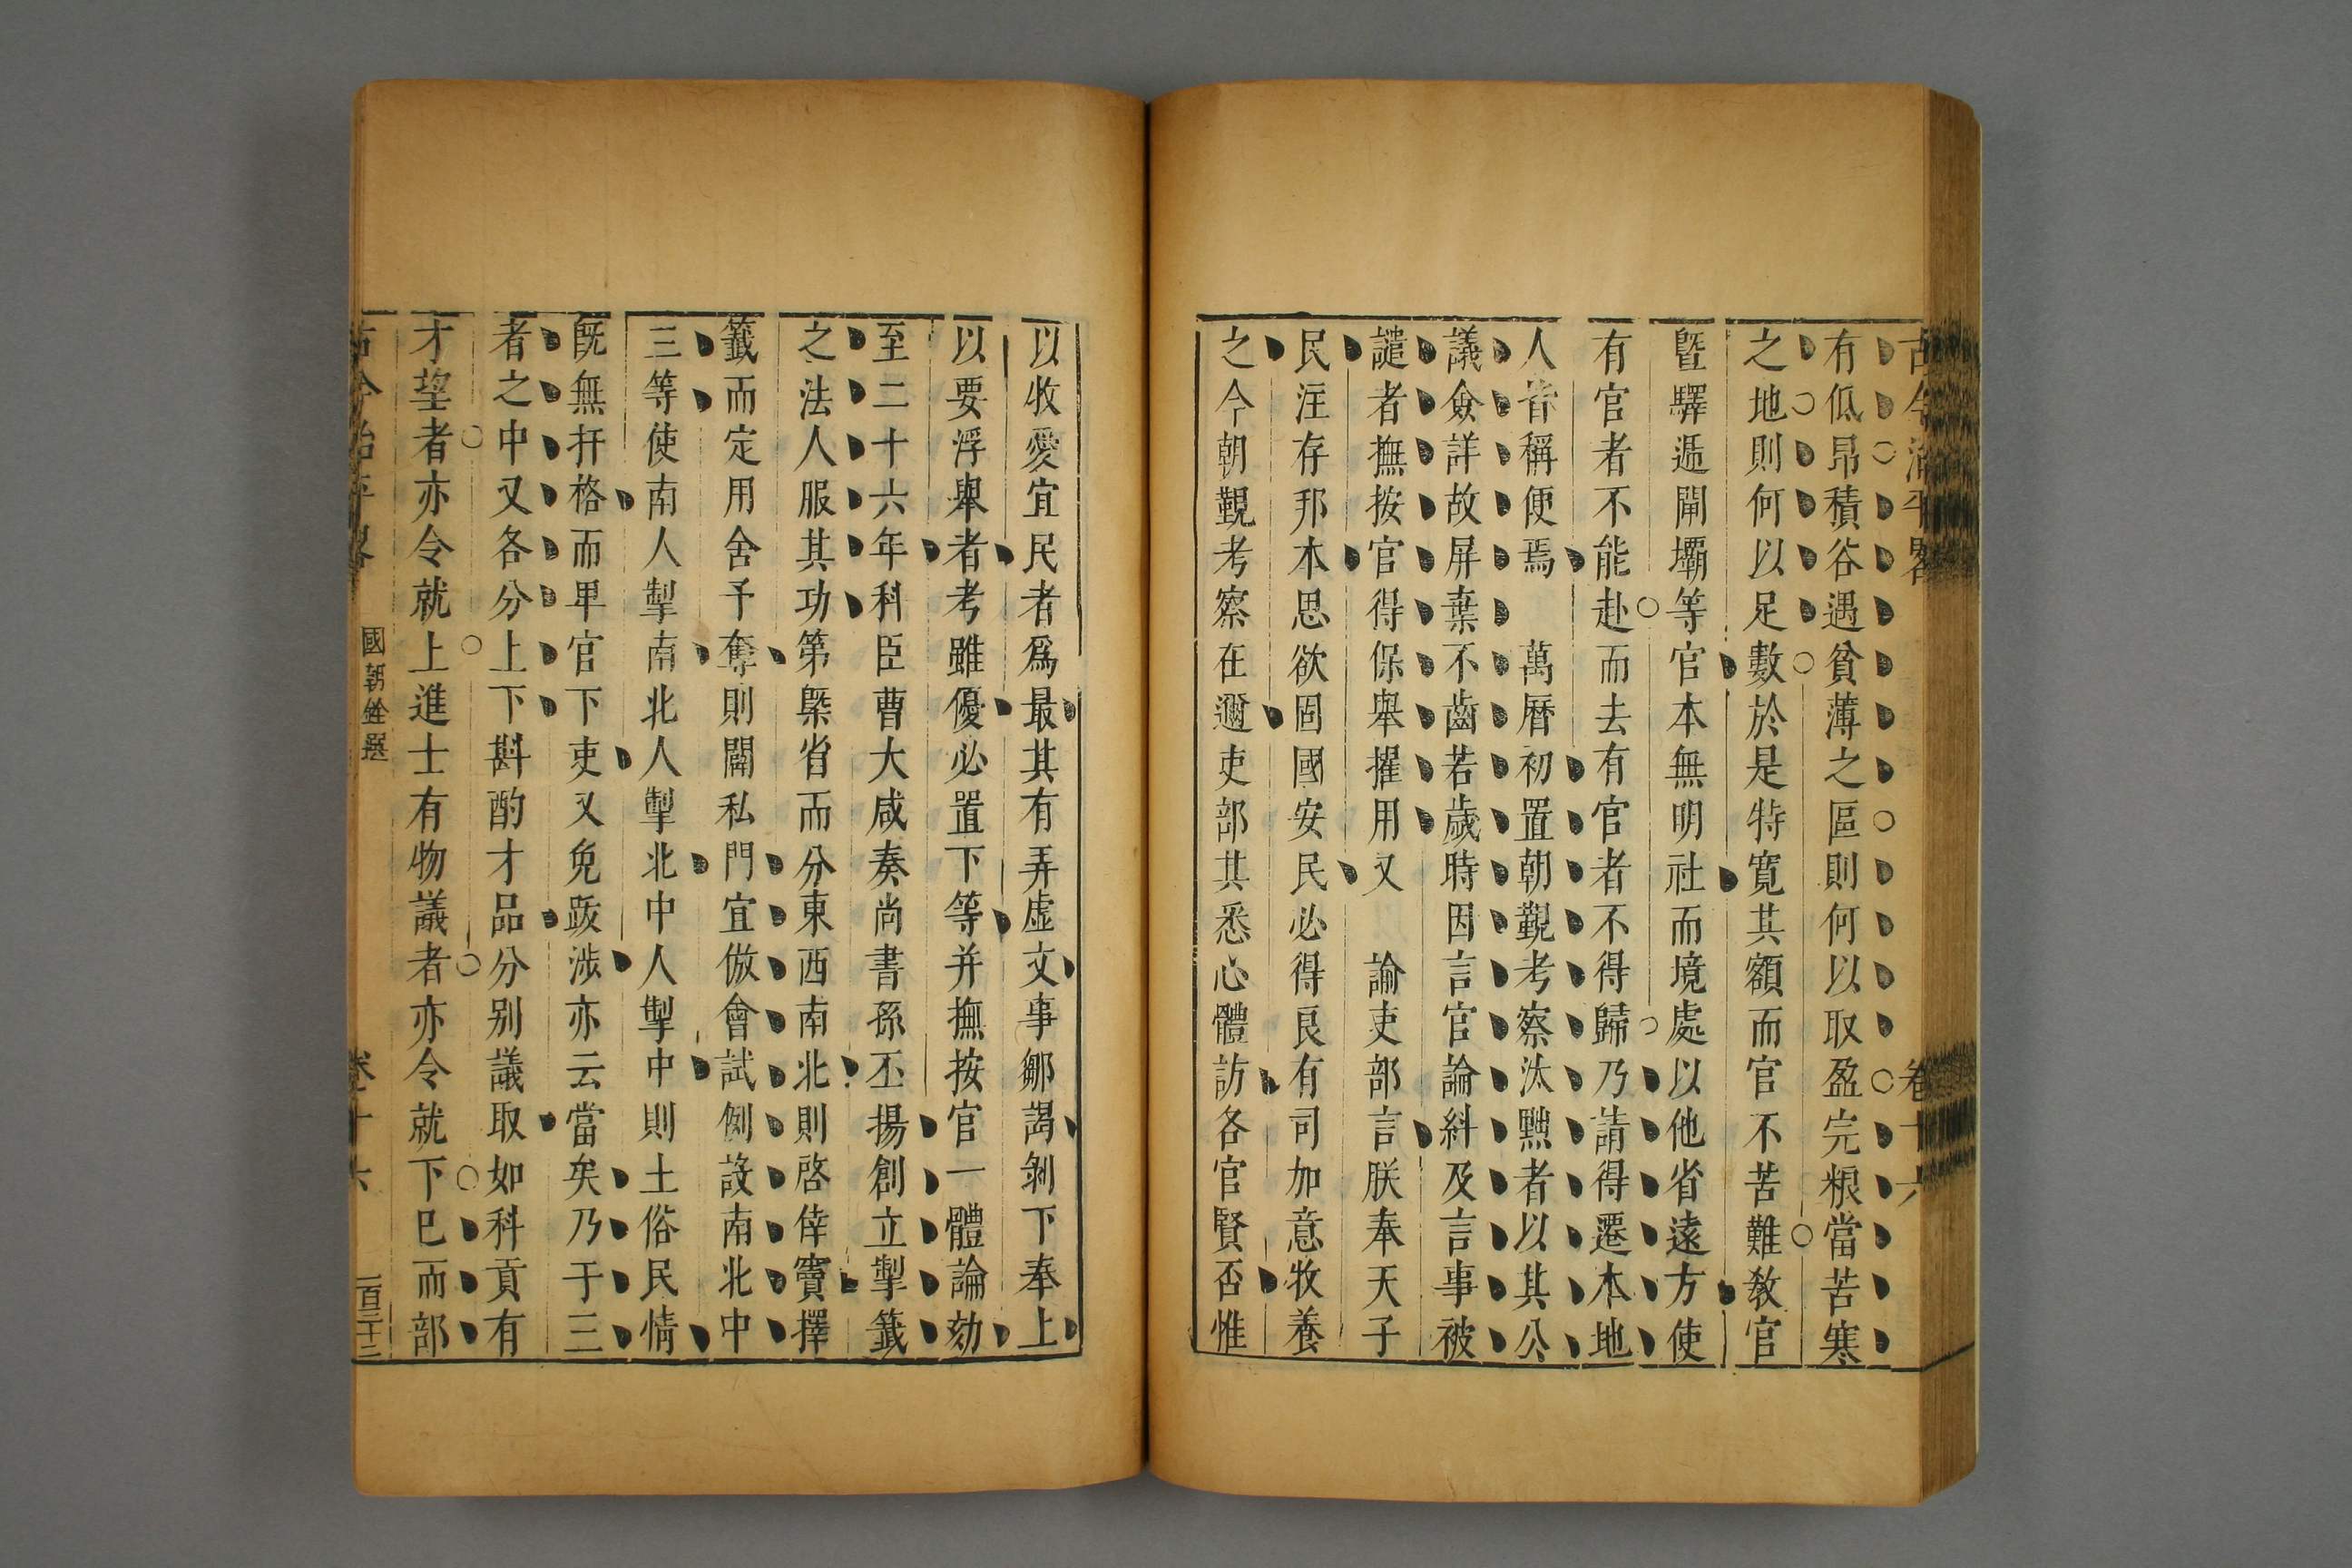 古今治平畧 卷十六
有低昂積谷遇貧薄之區則何以取盈完粮當苦寒
之地則何以足數於是特寛其額而官不苦難敎官
曁驛遞閘壩等官本無明社而境處以他省遠方使
有官者不能赴而去有官者不得歸乃請得遷本地
人皆稱便焉 萬曆初置朝覲考察汰黜者以其公
議僉詳故屏棄不齒若歲時因言官論糾及言事被
譴者撫按官得保舉擢用又 諭吏部言朕奉天子
民注存邦本思欲固國安民必得良有司加意牧養
之今朝覲考察在邇吏部其悉心體訪各官賢否惟
以收愛宜民者爲最其有弄虛文事鄉謁剝下奉上
以要浮舉者考雖優必置下等并撫按官一體論劾
至二十六年科臣曹大咸奏尚書孫丕揚創立掣籤
之法人服其功第槩省而分東西南北則啓倖竇擇
籤而定用舍予奪則闢私門宜倣會試例設南北中
三等使南人掣南北人掣北中人掣中則土俗民情
旣無扞格而卑官下吏又免跋涉亦云當矣乃于三
者之中又各分上下斟酌才品分别議取如科貢有
才望者亦令就上進士有物議者亦令就下已而部
古今治平畧 國朝銓選 卷十六 一百三十三